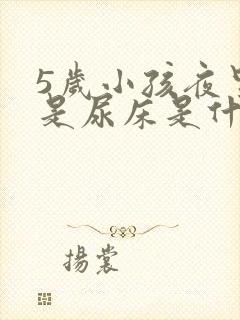 5歲小孩夜
是尿床是什
揚裳